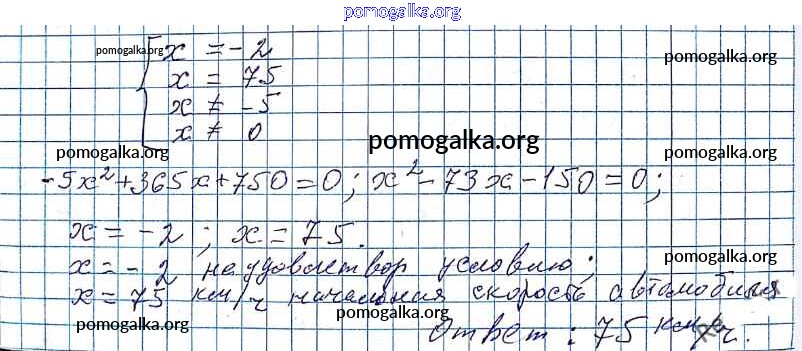 pomogalka.org
pomogalka.org x = -2 pomogalka.org
x = 75
x ≠ -5
x ≠ 0
pomogalka.org
pomogalka.org pomogalka.org
-5x² + 365x + 750 = 0; x² - 73x - 150 = 0;
x = -2; x = 75.
pomogalka.org
x = -2 не удовлетвор условию;
x = 75 км/ч начальная скорость автомобиля
pomogalka.org pomogalka.org pomogalka.org
Ответ: 75 км/ч.